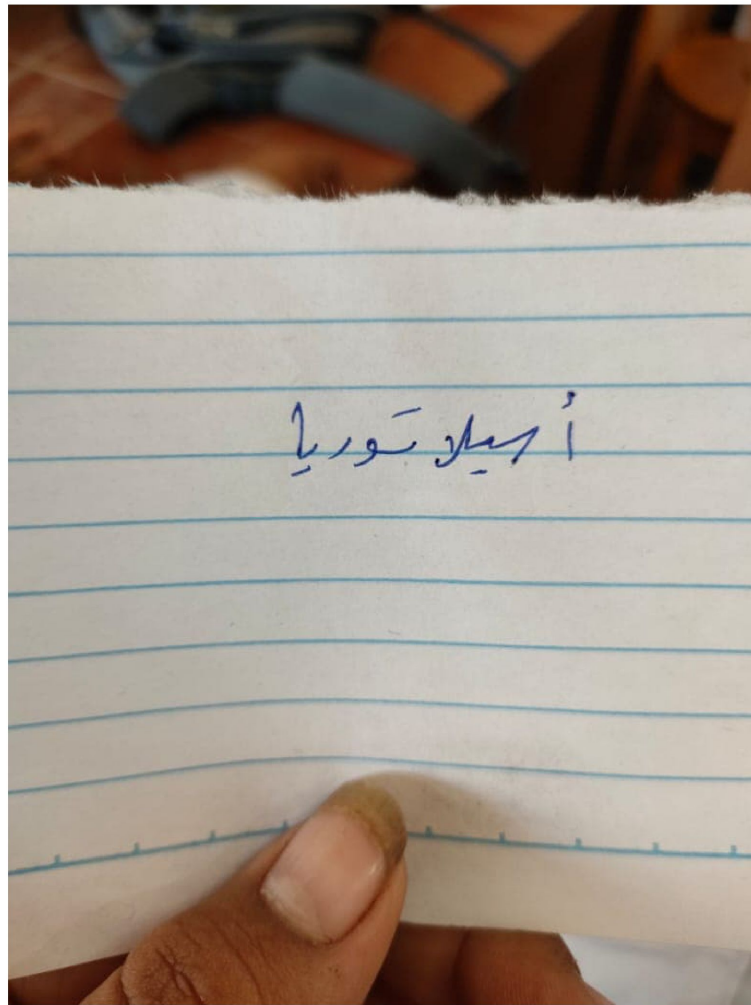 أسيلاتوريا